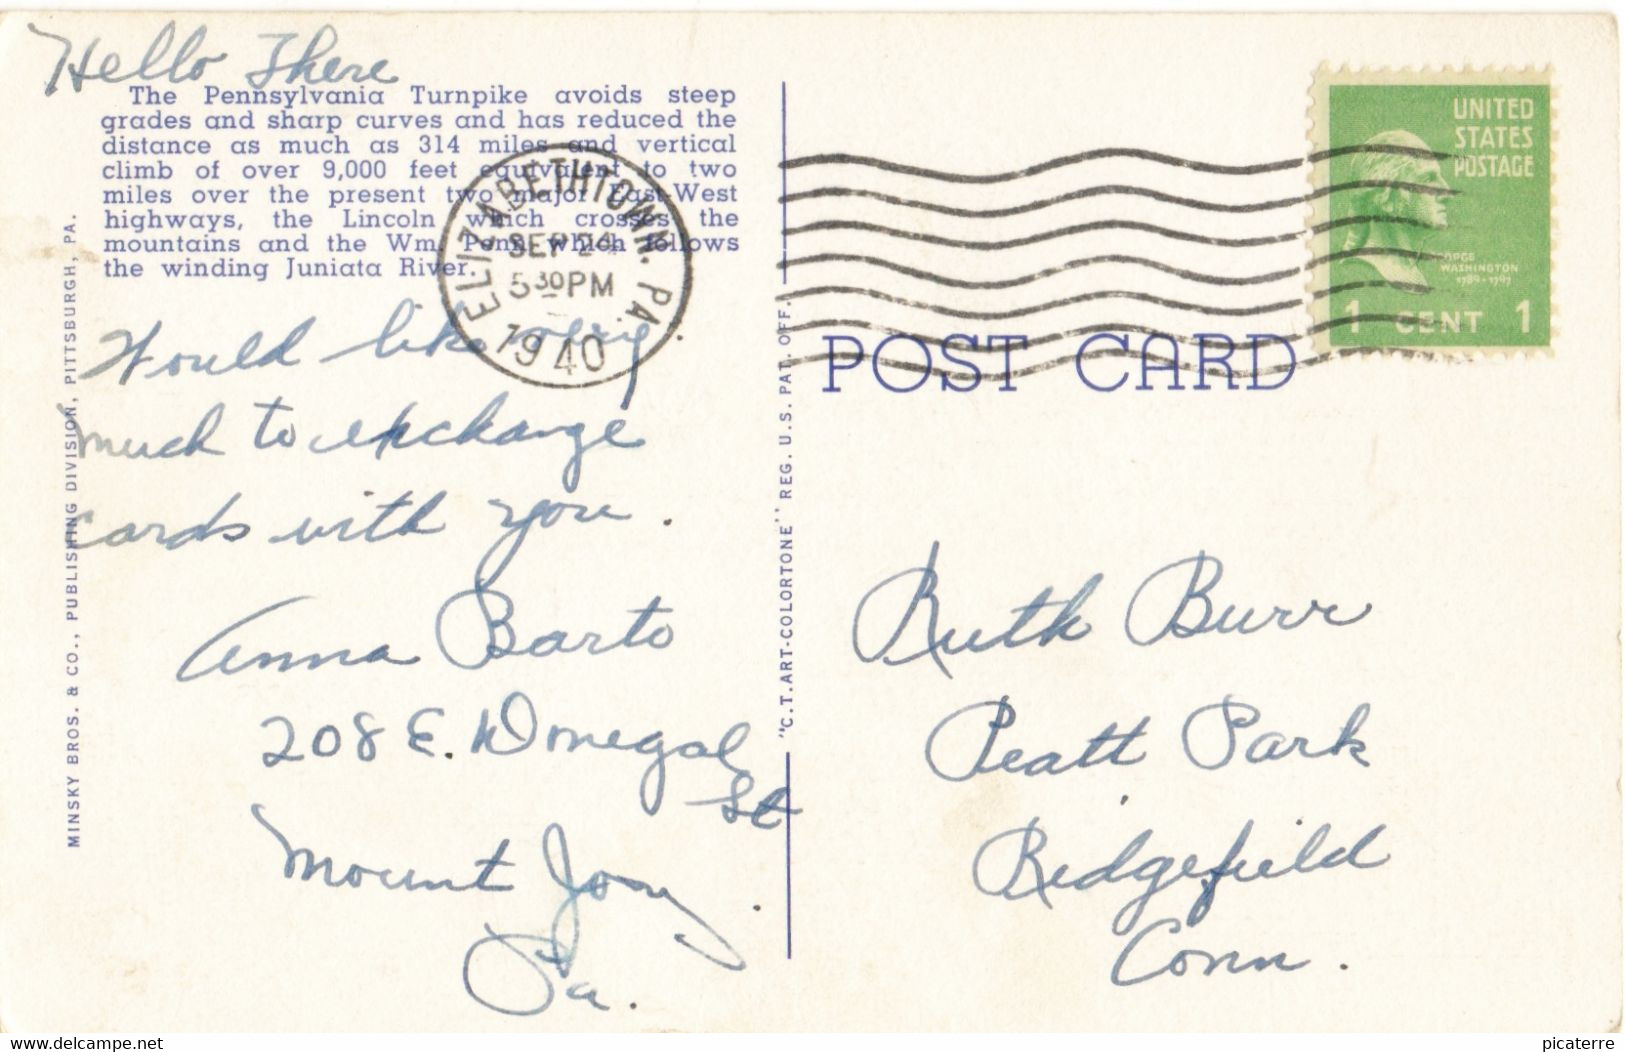 Hello There
The Pennsylvania Turnpike avoids steep
grades and sharp curves and has reduced the
distance as much as 314 miles and vertical
climb of over 9,000 feet equivalent to two
miles over the present two major East-West
highways, the Lincoln which crosses the
mountains and the Wm. Penn which follows
the winding Juniata River.
Would like very
much to exchange
cards with you.
Anna Barto
208 E. Donegal
St
Mount Joy
Pa.
ELIZABETHTOWN. PA.
SEP 24
5 30 PM
1940
MINSKY BROS. & CO., PUBLISHING DIVISION, PITTSBURGH, PA.
"C.T.ART-COLORTONE" REG. U.S. PAT. OFF.
POST CARD
UNITED
STATES
POSTAGE
GEORGE
WASHINGTON
1789-1797
1 CENT 1
Ruth Burr
Peatt Park
Ridgefield
Conn.
www.delcampe.net
picaterre